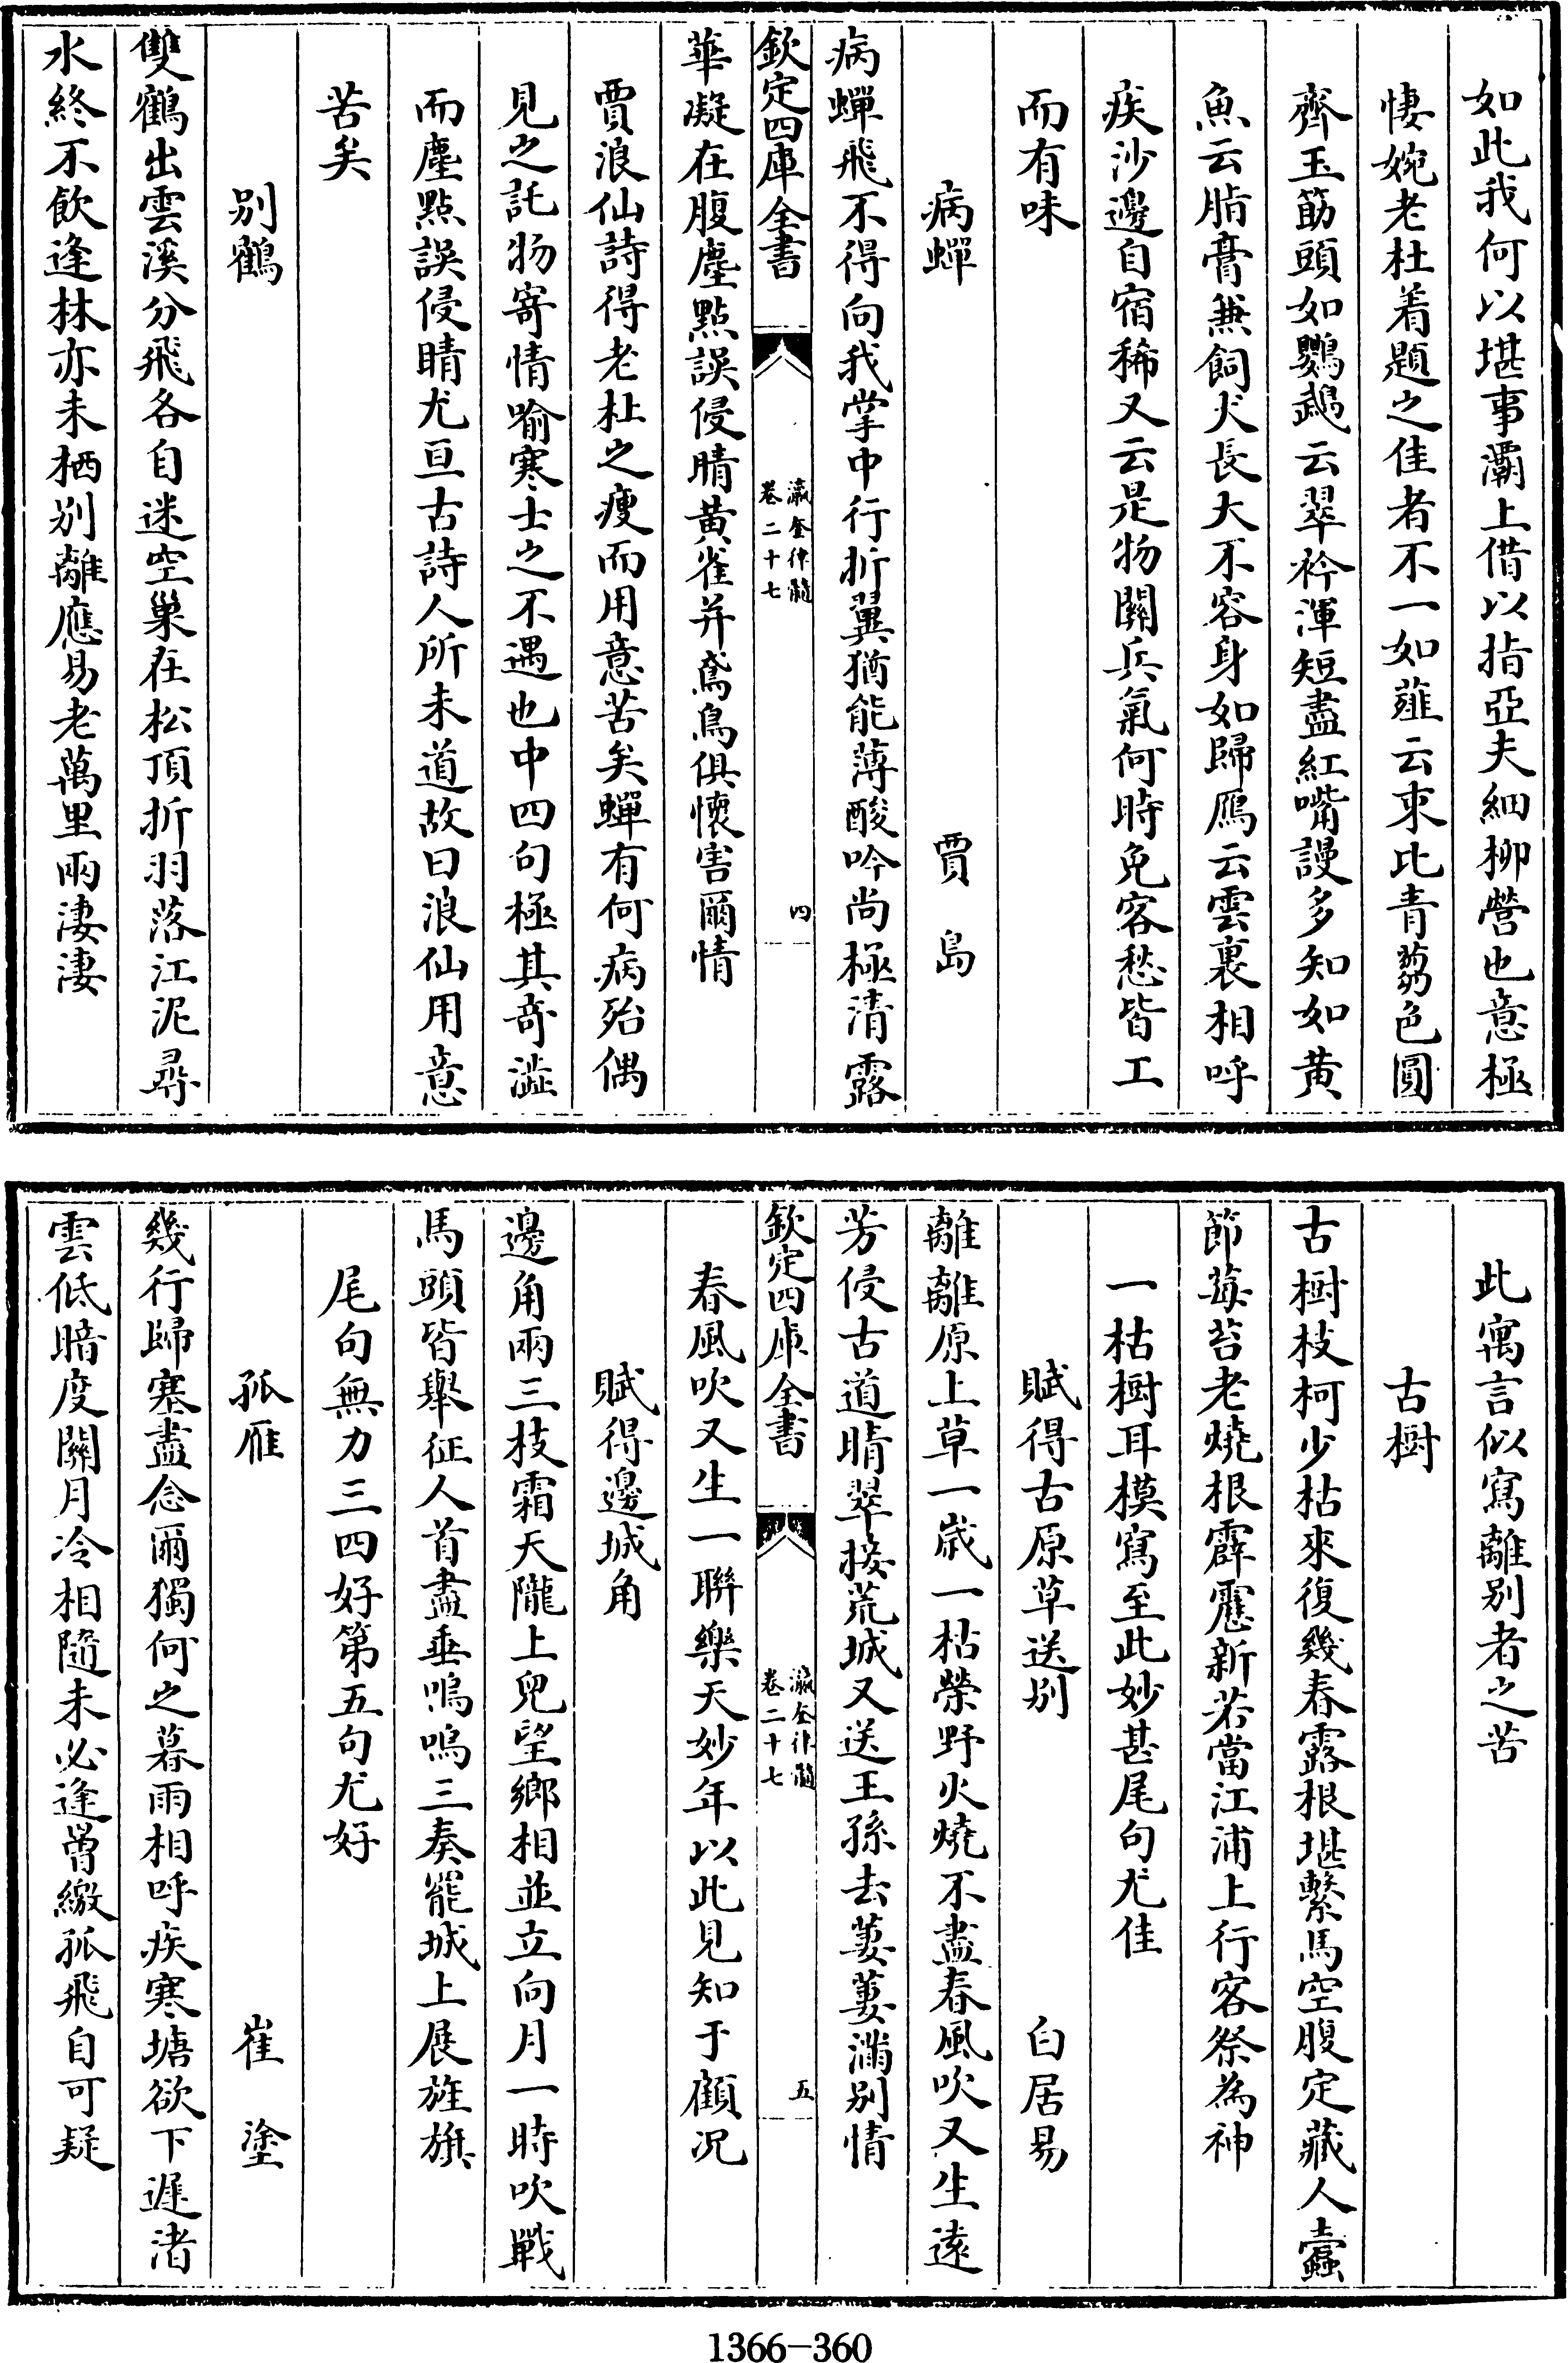 如此我何以堪事灞上借以指亞夫細柳營也意極
悽婉老杜着題之佳者不一如薤云束比青芻色圓
齊玉筯頭如鸚鵡云翠衿渾短盡紅嘴謾多知如黄
魚云脂膏兼飼犬長大不容身如歸鴈云雲裏相呼
疾沙邊自宿稀又云是物關兵氣何時免客愁皆工
而有味
病蟬 賈島
病蟬飛不得向我掌中行折翼猶能薄酸吟尚極清露
欽定四庫全書 瀛奎律髓 卷二十七 四
華凝在腹塵點誤侵睛黄雀并鳶鳥俱懷害爾情
賈浪仙詩得老杜之瘦而用意苦矣蟬有何病殆偶
見之託物寄情喻寒士之不遇也中四句極其奇澁
而塵點誤侵睛尤亘古詩人所未道故曰浪仙用意
苦矣
别鶴
雙鶴出雲溪分飛各自迷空巢在松頂折羽落江泥尋
水終不飲逢林亦未栖别離應易老萬里兩淒淒
此寓言似寫離别者之苦
古樹
古樹枝柯少枯來復幾春露根堪繫馬空腹定藏人蠹
節莓苔老燒根霹靂新若當江浦上行客祭為神
一枯樹耳模寫至此妙甚尾句尤佳
賦得古原草送别 白居易
離離原上草一歲一枯榮野火燒不盡春風吹又生遠
芳侵古道晴翠接荒城又送王孫去萋萋滿别情
欽定四庫全書 瀛奎律髓 卷二十七 五
春風吹又生一聯樂天妙年以此見知于顧况
賦得邊城角
邊角兩三枝霜天隴上兒望鄉相並立向月一時吹戰
馬頭皆舉征人首盡垂嗚嗚三奏罷城上展旌旗
尾句無力三四好第五句尤好
孤雁 崔塗
幾行歸塞盡念爾獨何之暮雨相呼疾寒塘欲下遲渚
雲低暗度關月冷相隨未必逢矰繳孤飛自可疑
1366-360